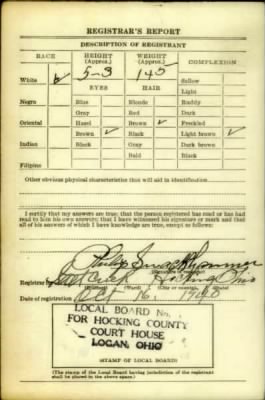 REGISTRAR'S REPORT
DESCRIPTION OF REGISTRANT
RACE HEIGHT (Approx.) WEIGHT (Approx.) COMPLEXION
White ✓ 5-3 145 Sallow
EYES HAIR Light
Negro Blue Blonde Ruddy
Gray Red Dark
Oriental Hazel Brown ✓ Freckled
Brown ✓ Black Light brown ✓
Indian Black Gray Dark brown
Bald Black
Filipino
Other obvious physical characteristics that will aid in identification
I certify that my answers are true; that the person registered has read or has had
read to him his own answers; that I have witnessed his signature or mark and that
all of his answers of which I have knowledge are true, except as follows:
Registrar for Ohio
(Ward) (City or county)
Date of registration Oct 16, 1940
LOCAL BOARD No.
FOR HOCKING COUNTY
COURT HOUSE
LOGAN, OHIO
(STAMP OF LOCAL BOARD)
(The stamp of the Local Board having jurisdiction of the registrant
shall be placed in the above space.)